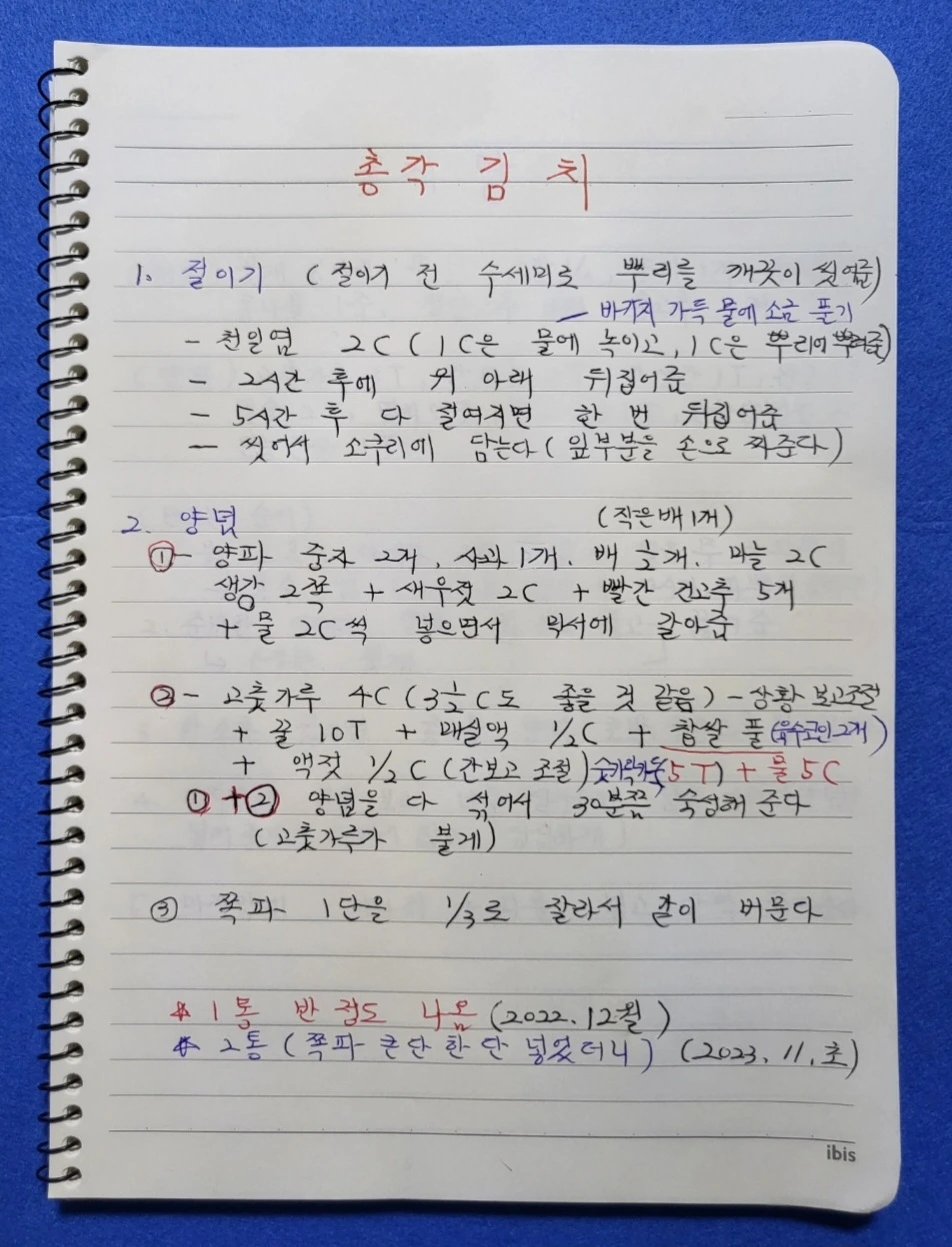 총각 김치
1. 절이기 (절이기 전 수세미로 뿌리를 깨끗이 씻어줌)
- 바가지 가득 물에 소금 풀기
- 천일염 2C (1C은 물에 녹이고, 1C은 뿌리에 뿌려줌)
- 2시간 후에 위 아래 뒤집어줌
- 5시간 후 다 절여지면 한 번 뒤집어줌
- 씻어서 소쿠리에 담는다 (잎부분을 손으로 짜준다)
2. 양념 (작은배 1개)
①- 양파 중자 2개, 사과 1개, 배 ½개, 마늘 2C
생강 2쪽 + 새우젓 2C + 빨간 건고추 5개
+ 물 2C씩 넣으면서 믹서에 갈아줌
②- 고춧가루 4C (3½C도 좋을 것 같음) - 상황 보고 조절
+ 꿀 10T + 매실액 1/2C + 찹쌀 풀 (육수코인 2개)
+ 액젓 1/2C (간보고 조절) 숟가락가득(5T) + 물 5C
① + ② 양념을 다 섞어서 30분쯤 숙성해 준다
(고춧가루가 불게)
③ 쪽파 1단을 1/3로 잘라서 같이 버문다
* 1통 반 정도 나옴 (2022. 12월)
* 2통 (쪽파 큰단 한 단 넣었더니) (2023. 11. 초)
ibis